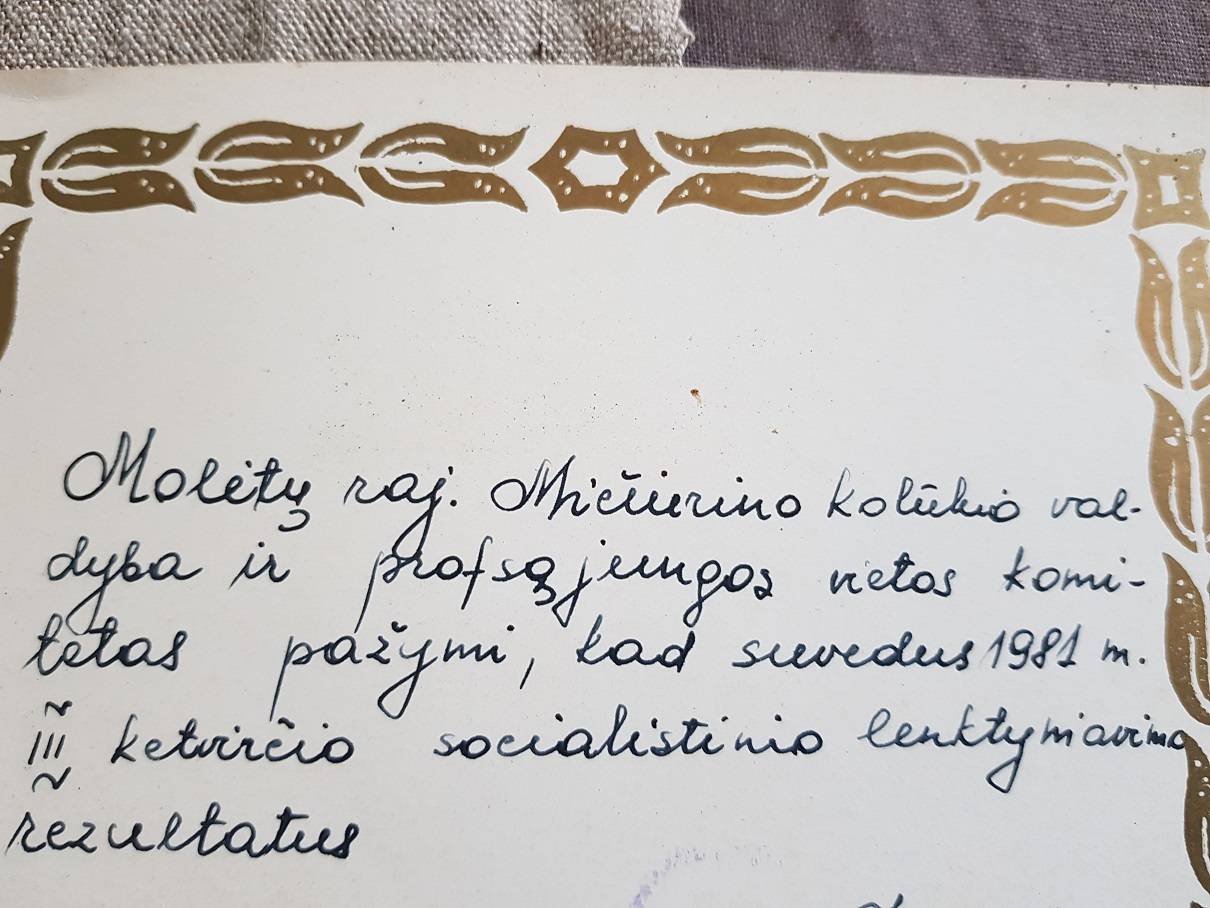 Molėtų raj. Mičiurino kolūkio val-
dyba ir profsąjungos vietos komi-
tetas pažymi, kad suvedus 1981 m.
III ketvirčio socialistinio lenktyniavimo
rezultatus